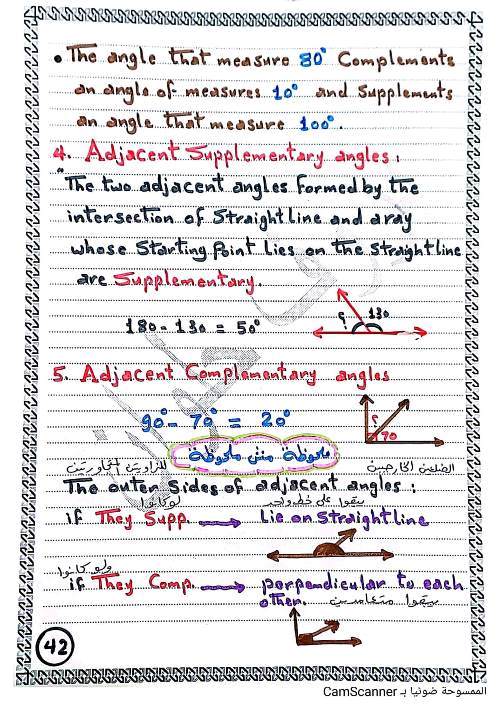 • The angle that measure 80° Complements
an angle of measures 10° and Supplements
an angle that measure 100°.
4. Adjacent Supplementary angles:
"The two adjacent angles formed by the
intersection of Straight line and a ray
whose Starting Point lies on the Straight line
are Supplementary.
180 - 130 = 50°
؟ 130
5. Adjacent Complementary angles
90° - 70° = 20°
؟ 70
ملحوظة مش ملحوظة
للزاويتين المتجاورتين الضلعين الخارجيين
The outer Sides of adjacent angles:
لو كانوا يبقوا على خط واحد
if They Supp. → Lie on Straight line
ولو كانوا
if They Comp. → perpendicular to each
other. يبقوا متعامدين
42
الممسوحة ضوئيا بـ CamScanner